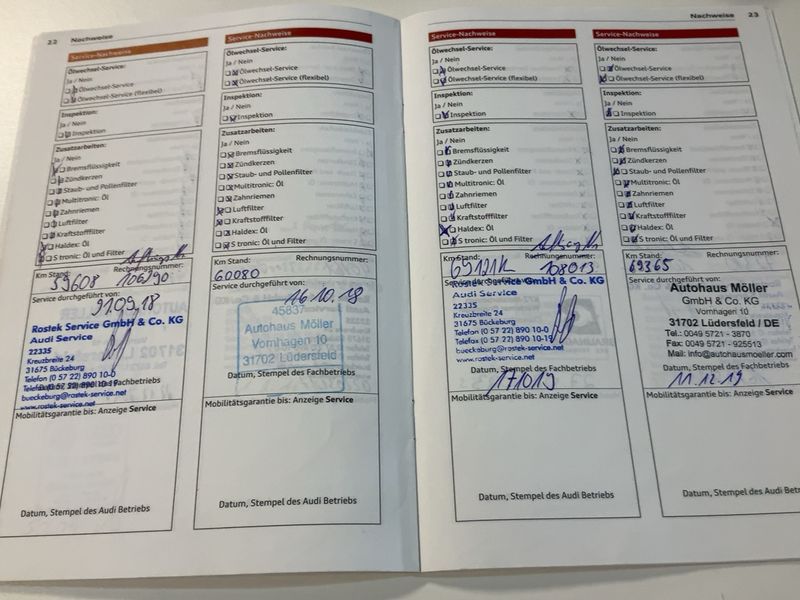 22 Nachweise
Service-Nachweise
Ölwechsel-Service:
Ja / Nein
Ölwechsel-Service
Ölwechsel-Service (flexibel)
Inspektion:
Ja / Nein
Inspektion
Zusatzarbeiten:
Ja / Nein
Bremsflüssigkeit
Zündkerzen
Staub- und Pollenfilter
Multitronic: Öl
Zahnriemen
Luftfilter
Kraftstofffilter
Haldex: Öl
S tronic: Öl und Filter
Km Stand: Rechnungsnummer:
59608 106790
Service durchgeführt von:
21.09.18
Rostek Service GmbH & Co. KG
Audi Service
22335
Kreuzbreite 24
31675 Bückeburg
Telefon (0 57 22) 890 10-0
bueckeburg@rostek-service.net
www.rostek-service.net
Mobilitätsgarantie bis: Anzeige Service
Datum, Stempel des Audi Betriebs
Service-Nachweise
Ölwechsel-Service:
Ja / Nein
Ölwechsel-Service
Ölwechsel-Service (flexibel)
Inspektion:
Ja / Nein
Inspektion
Zusatzarbeiten:
Ja / Nein
Bremsflüssigkeit
Zündkerzen
Staub- und Pollenfilter
Multitronic: Öl
Zahnriemen
Luftfilter
Kraftstofffilter
Haldex: Öl
S tronic: Öl und Filter
Km Stand: Rechnungsnummer:
60080
Service durchgeführt von:
16.10.18
45837
Autohaus Möller
Vornhagen 10
31702 Lüdersfeld
Datum, Stempel des Fachbetriebs
Mobilitätsgarantie bis: Anzeige Service
Datum, Stempel des Audi Betriebs
Nachweise 23
Service-Nachweise
Ölwechsel-Service:
Ja / Nein
Ölwechsel-Service
Ölwechsel-Service (flexibel)
Inspektion:
Ja / Nein
Inspektion
Zusatzarbeiten:
Ja / Nein
Bremsflüssigkeit
Zündkerzen
Staub- und Pollenfilter
Multitronic: Öl
Zahnriemen
Luftfilter
Kraftstofffilter
Haldex: Öl
S tronic: Öl und Filter
Km Stand: Rechnungsnummer:
108013
Rostek Service GmbH & Co. KG
Audi Service
22335
Kreuzbreite 24
31675 Bückeburg
Telefon (0 57 22) 890 10-0
bueckeburg@rostek-service.net
www.rostek-service.net
Datum, Stempel des Fachbetriebs
Mobilitätsgarantie bis: Anzeige Service
Datum, Stempel des Audi Betriebs
Service-Nachweise
Ölwechsel-Service:
Ja / Nein
Ölwechsel-Service
Ölwechsel-Service (flexibel)
Inspektion:
Ja / Nein
Inspektion
Zusatzarbeiten:
Ja / Nein
Bremsflüssigkeit
Zündkerzen
Staub- und Pollenfilter
Multitronic: Öl
Zahnriemen
Luftfilter
Kraftstofffilter
Haldex: Öl
S tronic: Öl und Filter
Km Stand: Rechnungsnummer:
69365
Service durchgeführt von:
Autohaus Möller
GmbH & Co. KG
Vornhagen 10
31702 Lüdersfeld / DE
Tel.: 0049 5721 - 3870
Fax: 0049 5721 - 925513
Mail: info@autohausmoeller.com
Datum, Stempel des Fachbetriebs
11.12.19
Mobilitätsgarantie bis: Anzeige Service
Datum, Stempel des Audi Betriebs